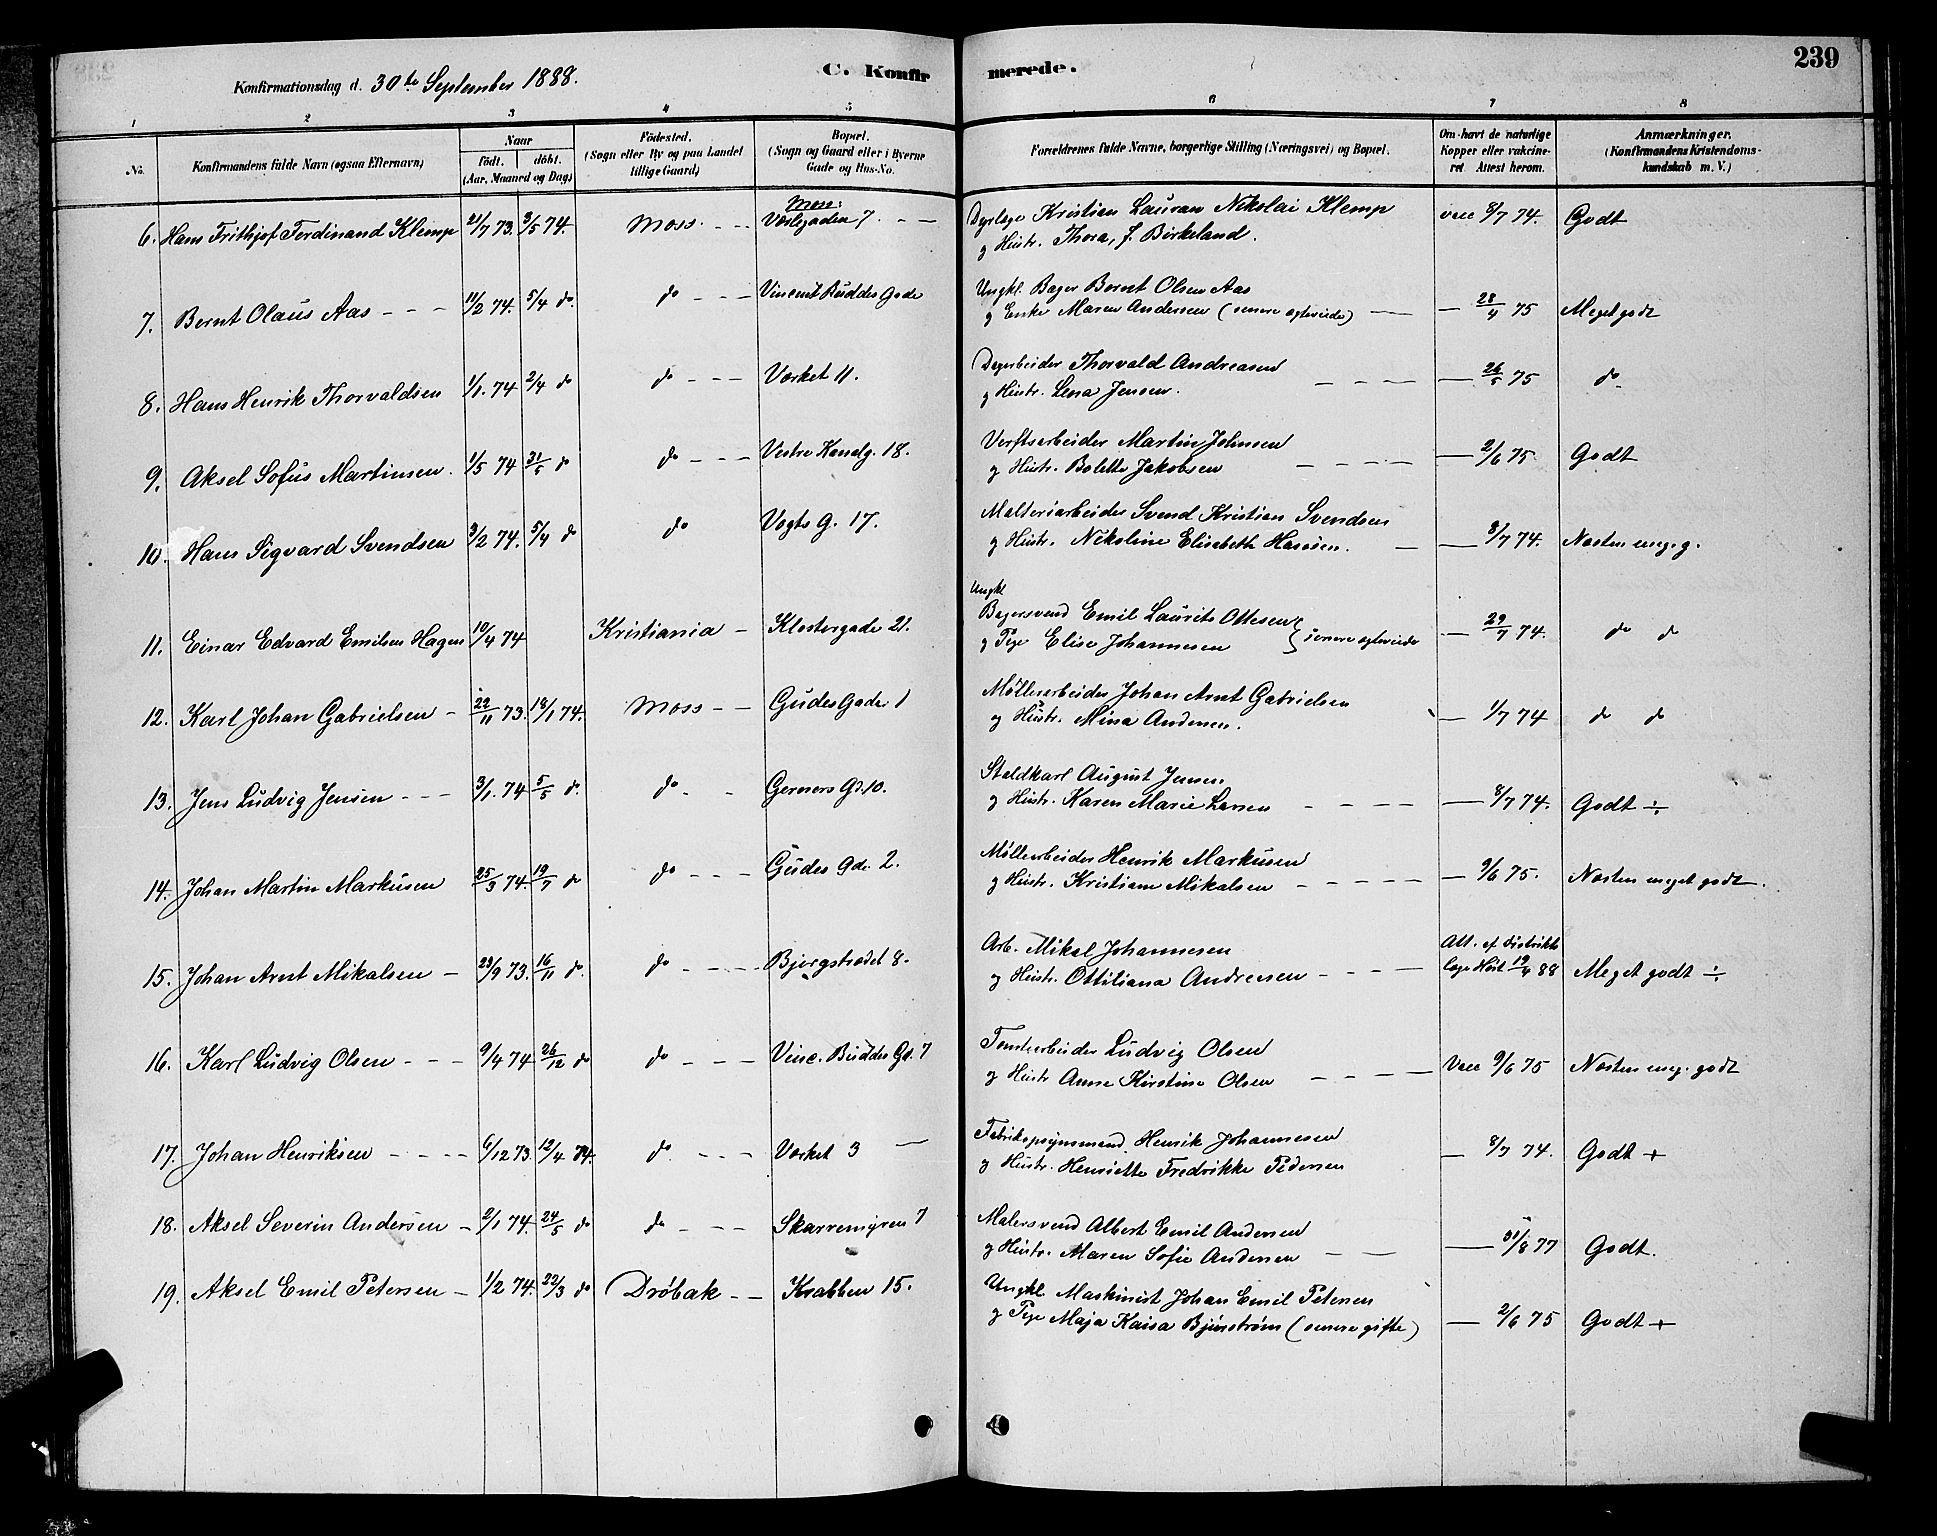 239
Konfirmationsdag d. 30te September 1888. C. Konfirmerede.
1 2 3 4 5 6 7 8
No. Konfirmandens fulde Navn (ogsaa Efternavn) Naar født. døbt. (Aar, Maaned og Dag) Fødested. (Sogn eller By og paa Landet tillige Gaard) Bopæl. (Sogn og Gaard eller i Byerne Gade og Hus-No. Forældrenes fulde Navne, borgerlige Stilling (Næringsvei) og Bopæl. Om havt de naturlige Kopper eller vakcineret Attest herom. Anmærkninger. (Konfirmandens Kristendomskundskab m. V.)
6. Hans Frithjof Ferdinand Klemp 21/7 73. 3/5 74. Moss - - Moss: Værlegaden 7 - - Dyrlæge Kristian Lauran Nikolai Klemp vacc 8/7 74. Godt
og Hustr. Thora, f. Birkeland.
7. Bernt Olaus Aas - - - 11/2 74. 5/4 do. do - - - Vincent Buddes Gade Ungkl. Bager Bernt Olsen Aas
og Enke Maren Andersen (senere ægteviede) — — 28/4 75 Meget godt
8. Hans Henrik Thorvaldsen 1/1. 74 2/4 do do - - - Værket 11. Dagarbeider Thorvald Andreasen
og Hustr. Lena Jensen. - - - - — 26/5 75 do
9. Aksel Sofus Martinsen. 1/5 74 31/5 do do - - - Vestre Kanalg. 18. Verftsarbeider Martin Johnsen
og Hustr. Bolette Jakobsen - - - - — 2/6 75 Godt
10. Hans Sigvard Svendsen 3/2 74. 5/4 do do Vogts G. 17. Malteriarbeider Svend Kristian Svendsen
og Hustr. Nikoline Elisabeth Hansen. - — 8/7 74. Næsten meg. g.
Ungkl
11. Einar Edvard Emilsen Hagen 10/4 74 Kristiania - Klostergade 21. Bagersvend Emil Laurits Ottesen
og Pige Elise Johannesen } senere ægteviede — 29/7 74. do do
12. Karl Johan Gabrielsen - 22/11 73. 18/1 74. Moss - - Gudes Gade 1 Møllerarbeider Johan Arnt Gabrielsen
og Hustr. Mina Andersen. — 1/7 74 do do
13. Jens Ludvig Jensen - - - 3/1. 74 5/5 do. do - - Gerners Gd. 10. Staldkarl August Jensen
og Hustr. Karen Marie Larsen - - - - — 8/7 74. Godt ÷
14. Johan Martin Markusen 25/3 74. 19/7 do do - - - Gudes Gde. 2. Møllearbeider Henrik Markusen
og Hustr. Kristiane Mikalsen - - - - - — 9/6 75. Næsten meget godt.
15. Johan Arnt Mikalsen - 23/9 73. 16/11 do. do - - - Bjergstrædet 8. Arb. Mikal Johannesen Att. af Distrikts
og Hustr. Ottiliana Andresen - - - - læge Høst 19/4 88 Meget godt ÷
16. Karl Ludvig Olsen - - - 9/4 74 26/12 do do - - - Vinc. Buddes Gd. 7 Tomtearbeider Ludvig Olsen
og Hustr Anne Kirstine Olsen - - - - Vacc 9/6 75 Næsten meg. godt
17. Johan Henriksen - - - - 6/12 73. 12/4 74. do - - - Værket 3 — Fabrikopsynsmand Henrik Johannesen
og Hustr. Henriette Fredrikke Pedersen — 8/7 74. Godt +
18. Aksel Severin Andersen - 2/1 74. 24/5 do do - - - Skarremyren 7 Malersvend Albert Emil Andersen
og Hustr. Maren Sofie Andersen — — — 31/8 77 Godt.
19. Aksel Emil Petersen - 1/2 74. 22/3 do Drøbak - - Krabben 15. Ungkl. Maskinist Johan Emil Petersen
og Pige Maja Kaisa Bjurstrøm (senere gifte) — 2/6 75 Godt +